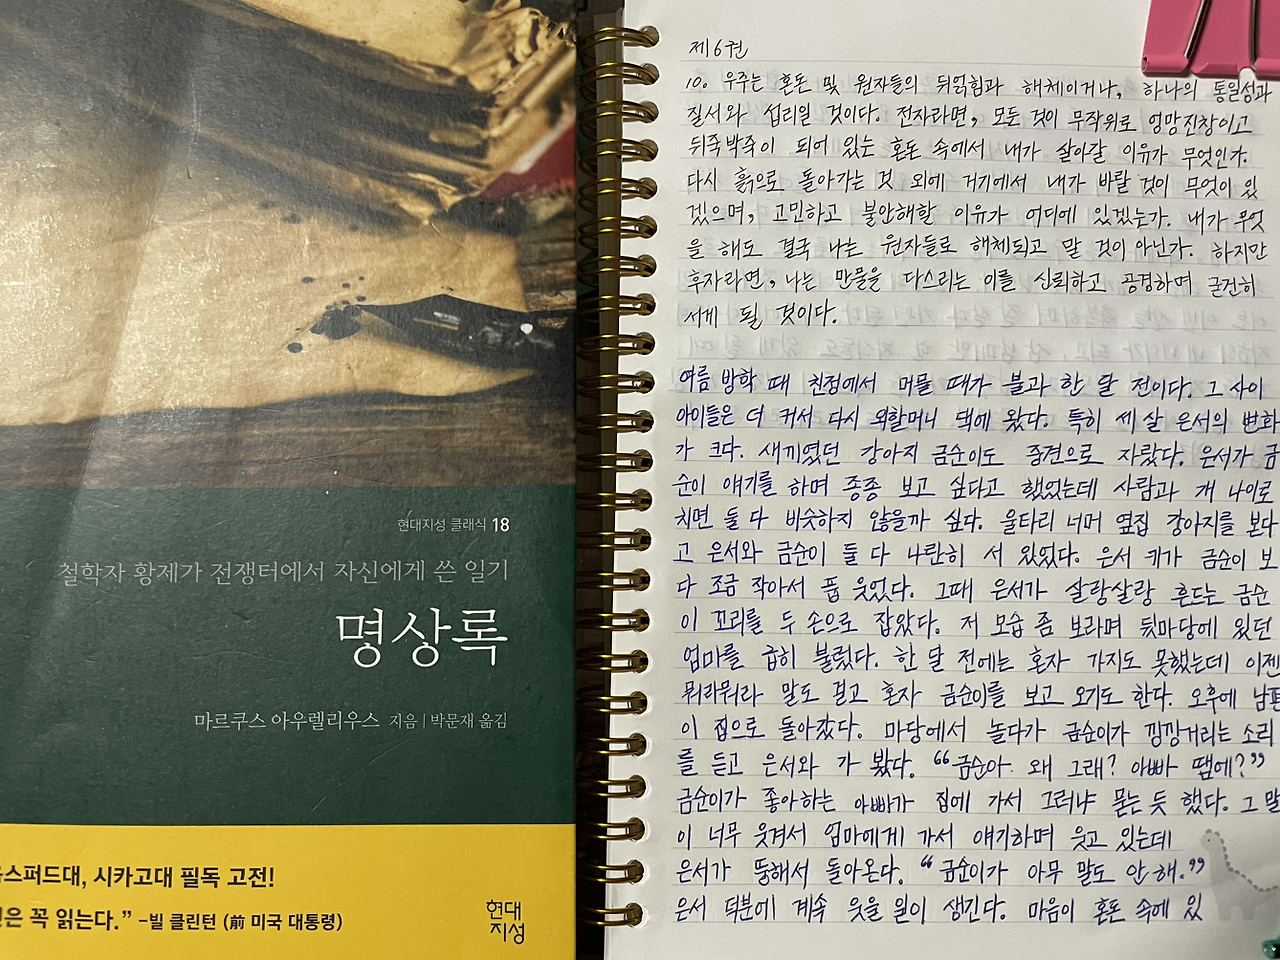 현대지성 클래식 18
철학자 황제가 전쟁터에서 자신에게 쓴 일기
명상록
마르쿠스 아우렐리우스 지음 | 박문재 옮김
옥스퍼드대, 시카고대 필독 고전!
은 꼭 읽는다.” -빌 클린턴 (前 미국 대통령)
현대
지성
제6권
10. 우주는 혼돈 및 원자들의 뒤얽힘과 해체이거나, 하나의 통일성과
질서와 섭리일 것이다. 전자라면, 모든 것이 무작위로 엉망진창이고
뒤죽박죽이 되어 있는 혼돈 속에서 내가 살아갈 이유가 무엇인가.
다시 흙으로 돌아가는 것 외에 거기에서 내가 바랄 것이 무엇이 있
겠으며, 고민하고 불안해할 이유가 어디에 있겠는가. 내가 무엇
을 해도 결국 나는 원자들로 해체되고 말 것이 아닌가. 하지만
후자라면, 나는 만물을 다스리는 이를 신뢰하고 공경하며 굳건히
서게 될 것이다.
여름 방학 때 친정에서 머물 때가 불과 한 달 전이다. 그 사이
아이들은 더 커서 다시 외할머니 댁에 왔다. 특히 세 살 은서의 변화
가 크다. 새끼였던 강아지 금순이도 중견으로 자랐다. 은서가 금
순이 얘기를 하며 종종 보고 싶다고 했었는데 사람과 개 나이로
치면 둘 다 비슷하지 않을까 싶다. 울타리 너머 옆집 강아지를 본다
고 은서와 금순이 둘 다 나란히 서 있었다. 은서 키가 금순이 보
다 조금 작아서 풉 웃었다. 그때 은서가 살랑살랑 흔드는 금순
이 꼬리를 두 손으로 잡았다. 저 모습 좀 보라며 뒷마당에 있던
엄마를 급히 불렀다. 한 달 전에는 혼자 가지도 못했는데 이젠
뭐라뭐라 말도 걸고 혼자 금순이를 보고 오기도 한다. 오후에 남편
이 집으로 돌아갔다. 마당에서 놀다가 금순이가 낑낑거리는 소리
를 듣고 은서와 가 봤다. “금순아. 왜 그래? 아빠 땜에?”
금순이가 좋아하는 아빠가 집에 가서 그러냐 묻는 듯 했다. 그 말
이 너무 웃겨서 엄마에게 가서 얘기하며 웃고 있는데
은서가 뚱해서 돌아온다. “금순이가 아무 말도 안 해.”
은서 덕분에 계속 웃을 일이 생긴다. 마음이 혼돈 속에 있